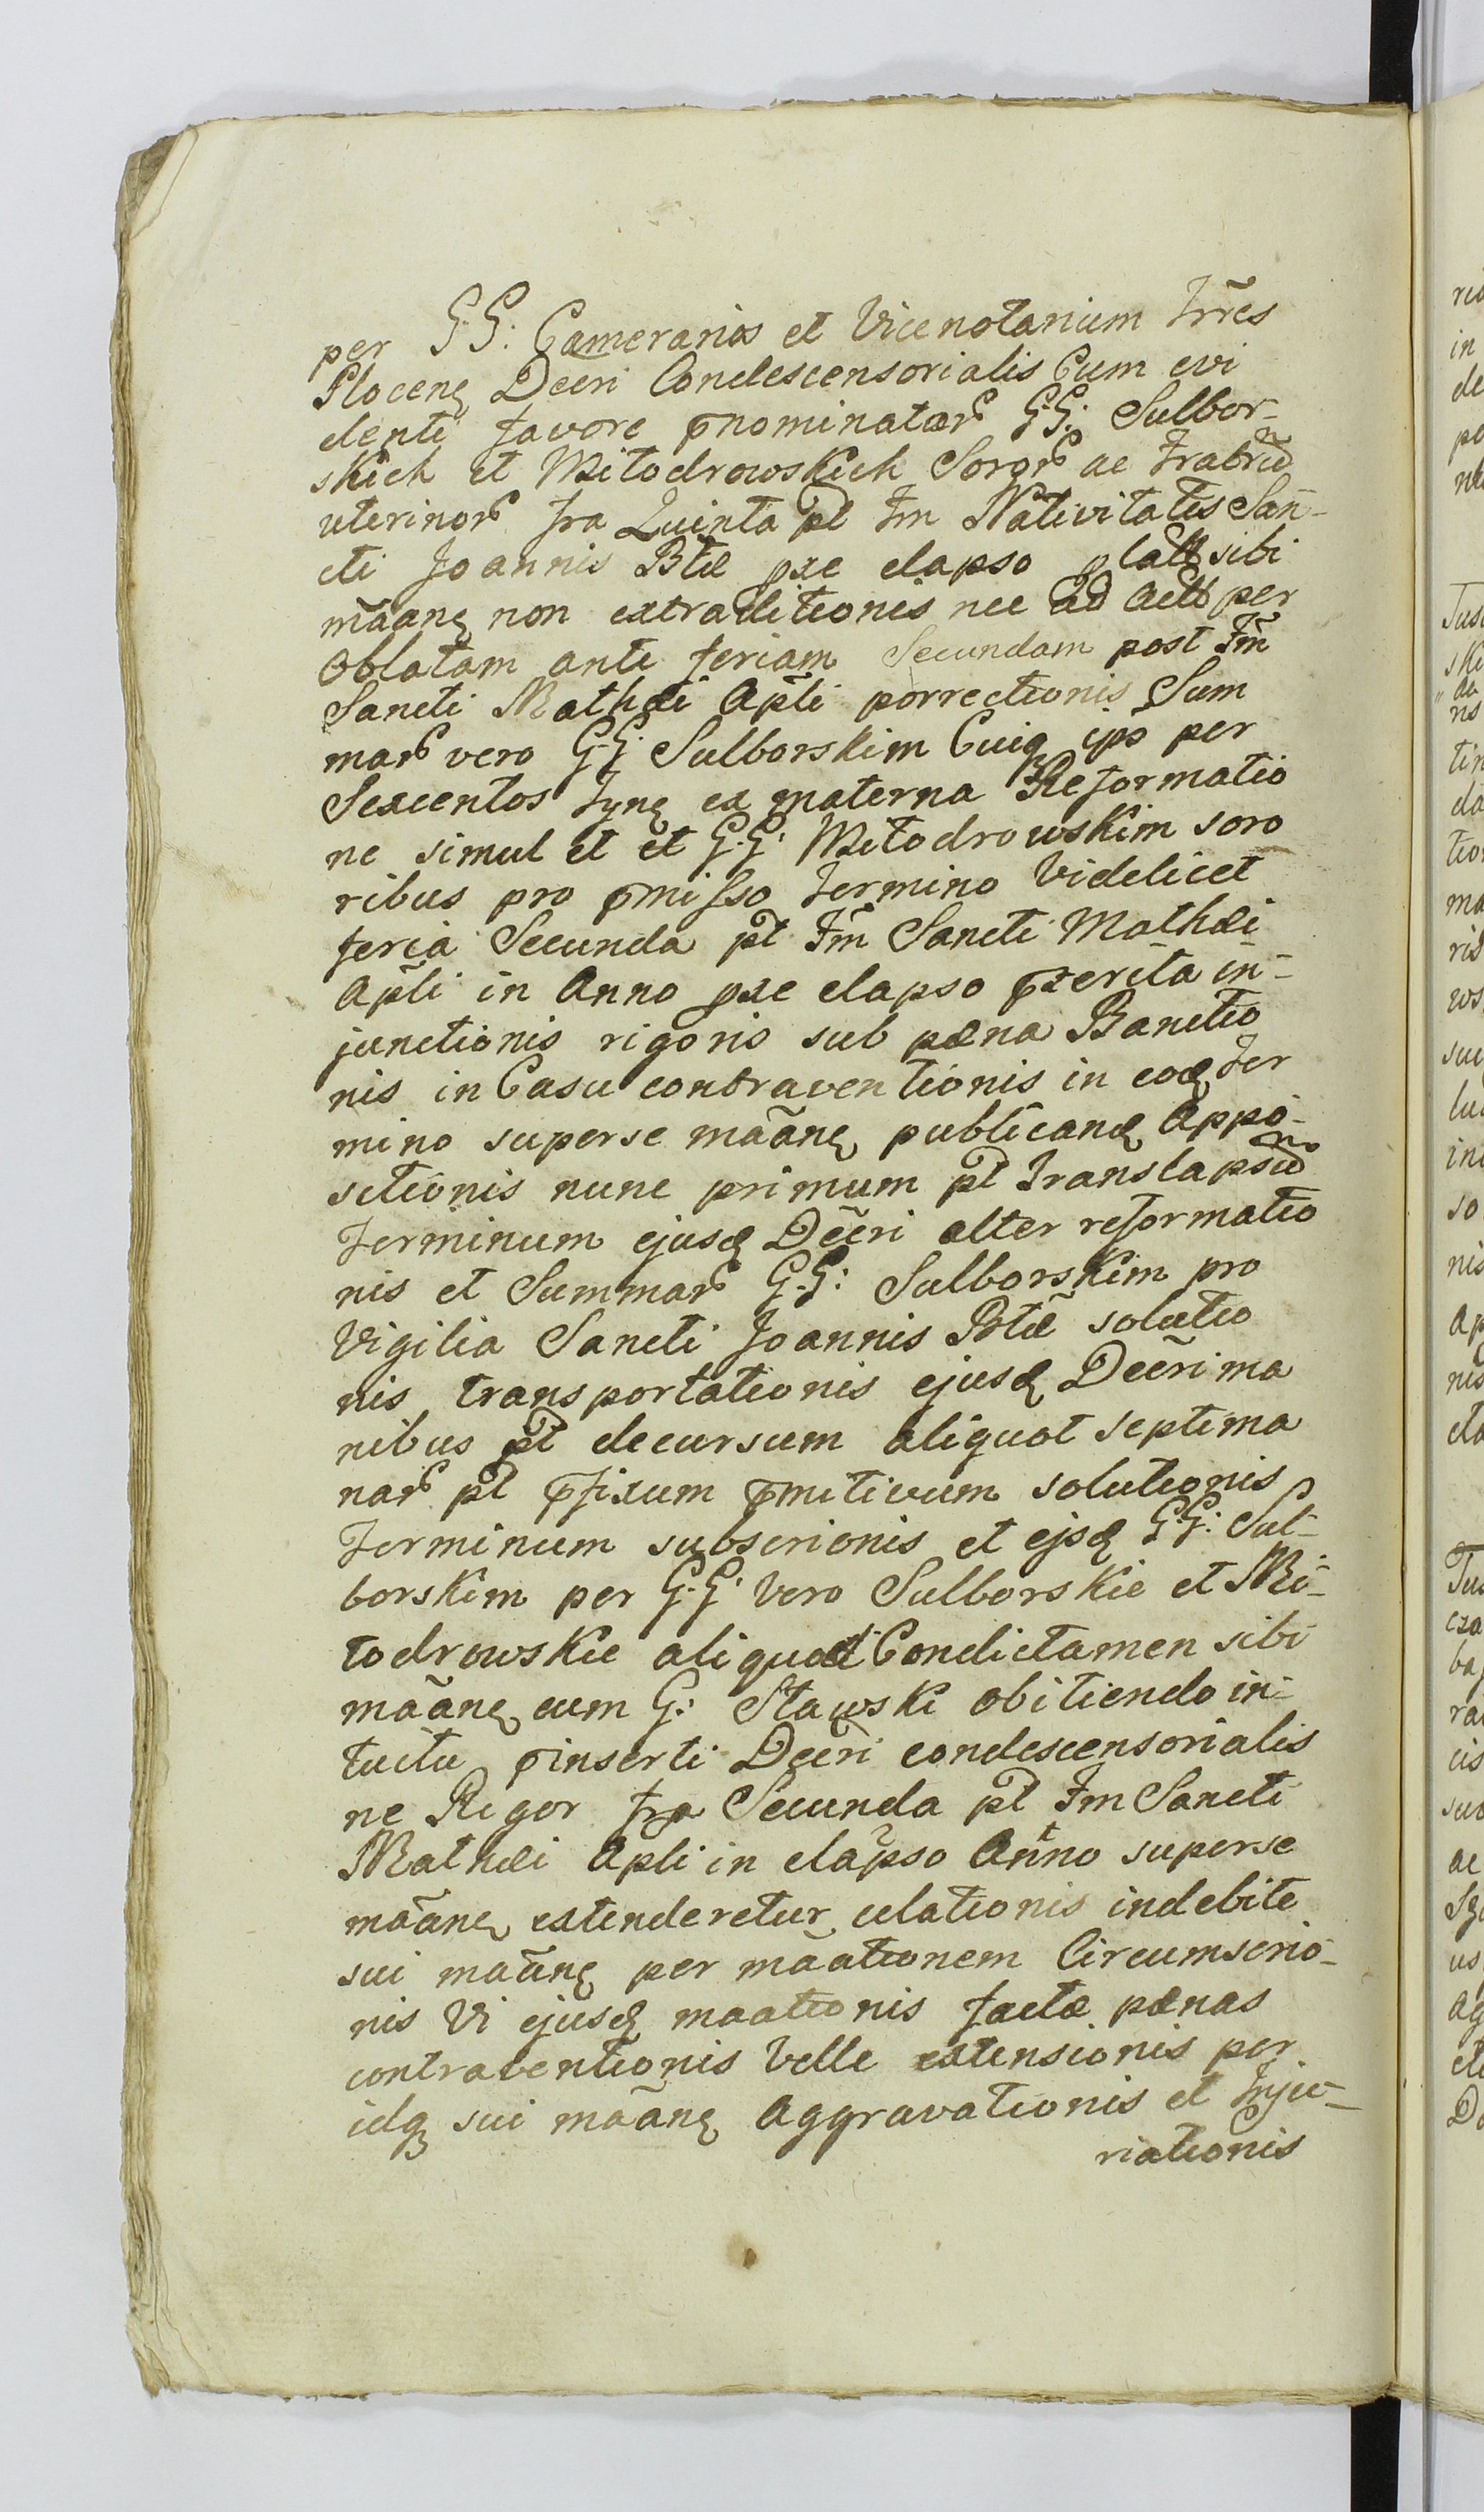 per G.G: Camerarios et Vicenotarium Trres
Plocens Decri Condescensorialis Cum evi
denti favore pnominatar G.G: Sulbor-
skich et Mitodrowskich Soror ac Fratru
uterinor fra Quinta pt Fm Nativitatis San-
cti Joannis Btæ pxe elapso latt sibi
mãane non extraditionis nec ad Actt per
Oblatam ante feriam Secundam post Fm̃
Sancti Mathæi Apli porrectionis Sum
mar vero G.G: Sulborskim Cuiq ipo per
Sexcentos fyne ex materna Reformatio
ne simul et et G.G: Mitodrowskim soro
ribus pro pmisso termino Videlicet
feria Secunda pt Fm̃ Sancti Mathæi
Apli in Anno pxe elapso pterita in-
junctionis rigoris sub pæna Bannitio
nis in Casu contraventionis in eod ter
mino superse mãane publicand Appo-
sitionis nunc primum pt translapsũ
terminum ejusd Decri alter reformatio
nis et Summar G.G: Sulborskim pro
Vigilia Sancti Joannis Btæ solutio
nis transportationis ejusd Decri ma
nibus pt decursum aliquot septima
nar pt pfixum pmitivum solutionis
terminum subscrionis et ejsd G.G: Sul-
borskim per G.G: vero Sulborskie et Mi-
todrowskie aliquod Condictamen sibi
mãane cum G: Stawski obitiendo in-
tuitu pinserti Decri condescensorialis
ne Rigor fra Secunda pt Fm Sancti
Mathæi Apli in elapso Anno superse
mãane extenderetur celationis indebite
sui mãane per mãationem Circumscrio-
nis Vi ejusd maationis factæ pænas
contraventionis Velle extensionis per
idq sui mãane Aggravationis et Inju-
riationis